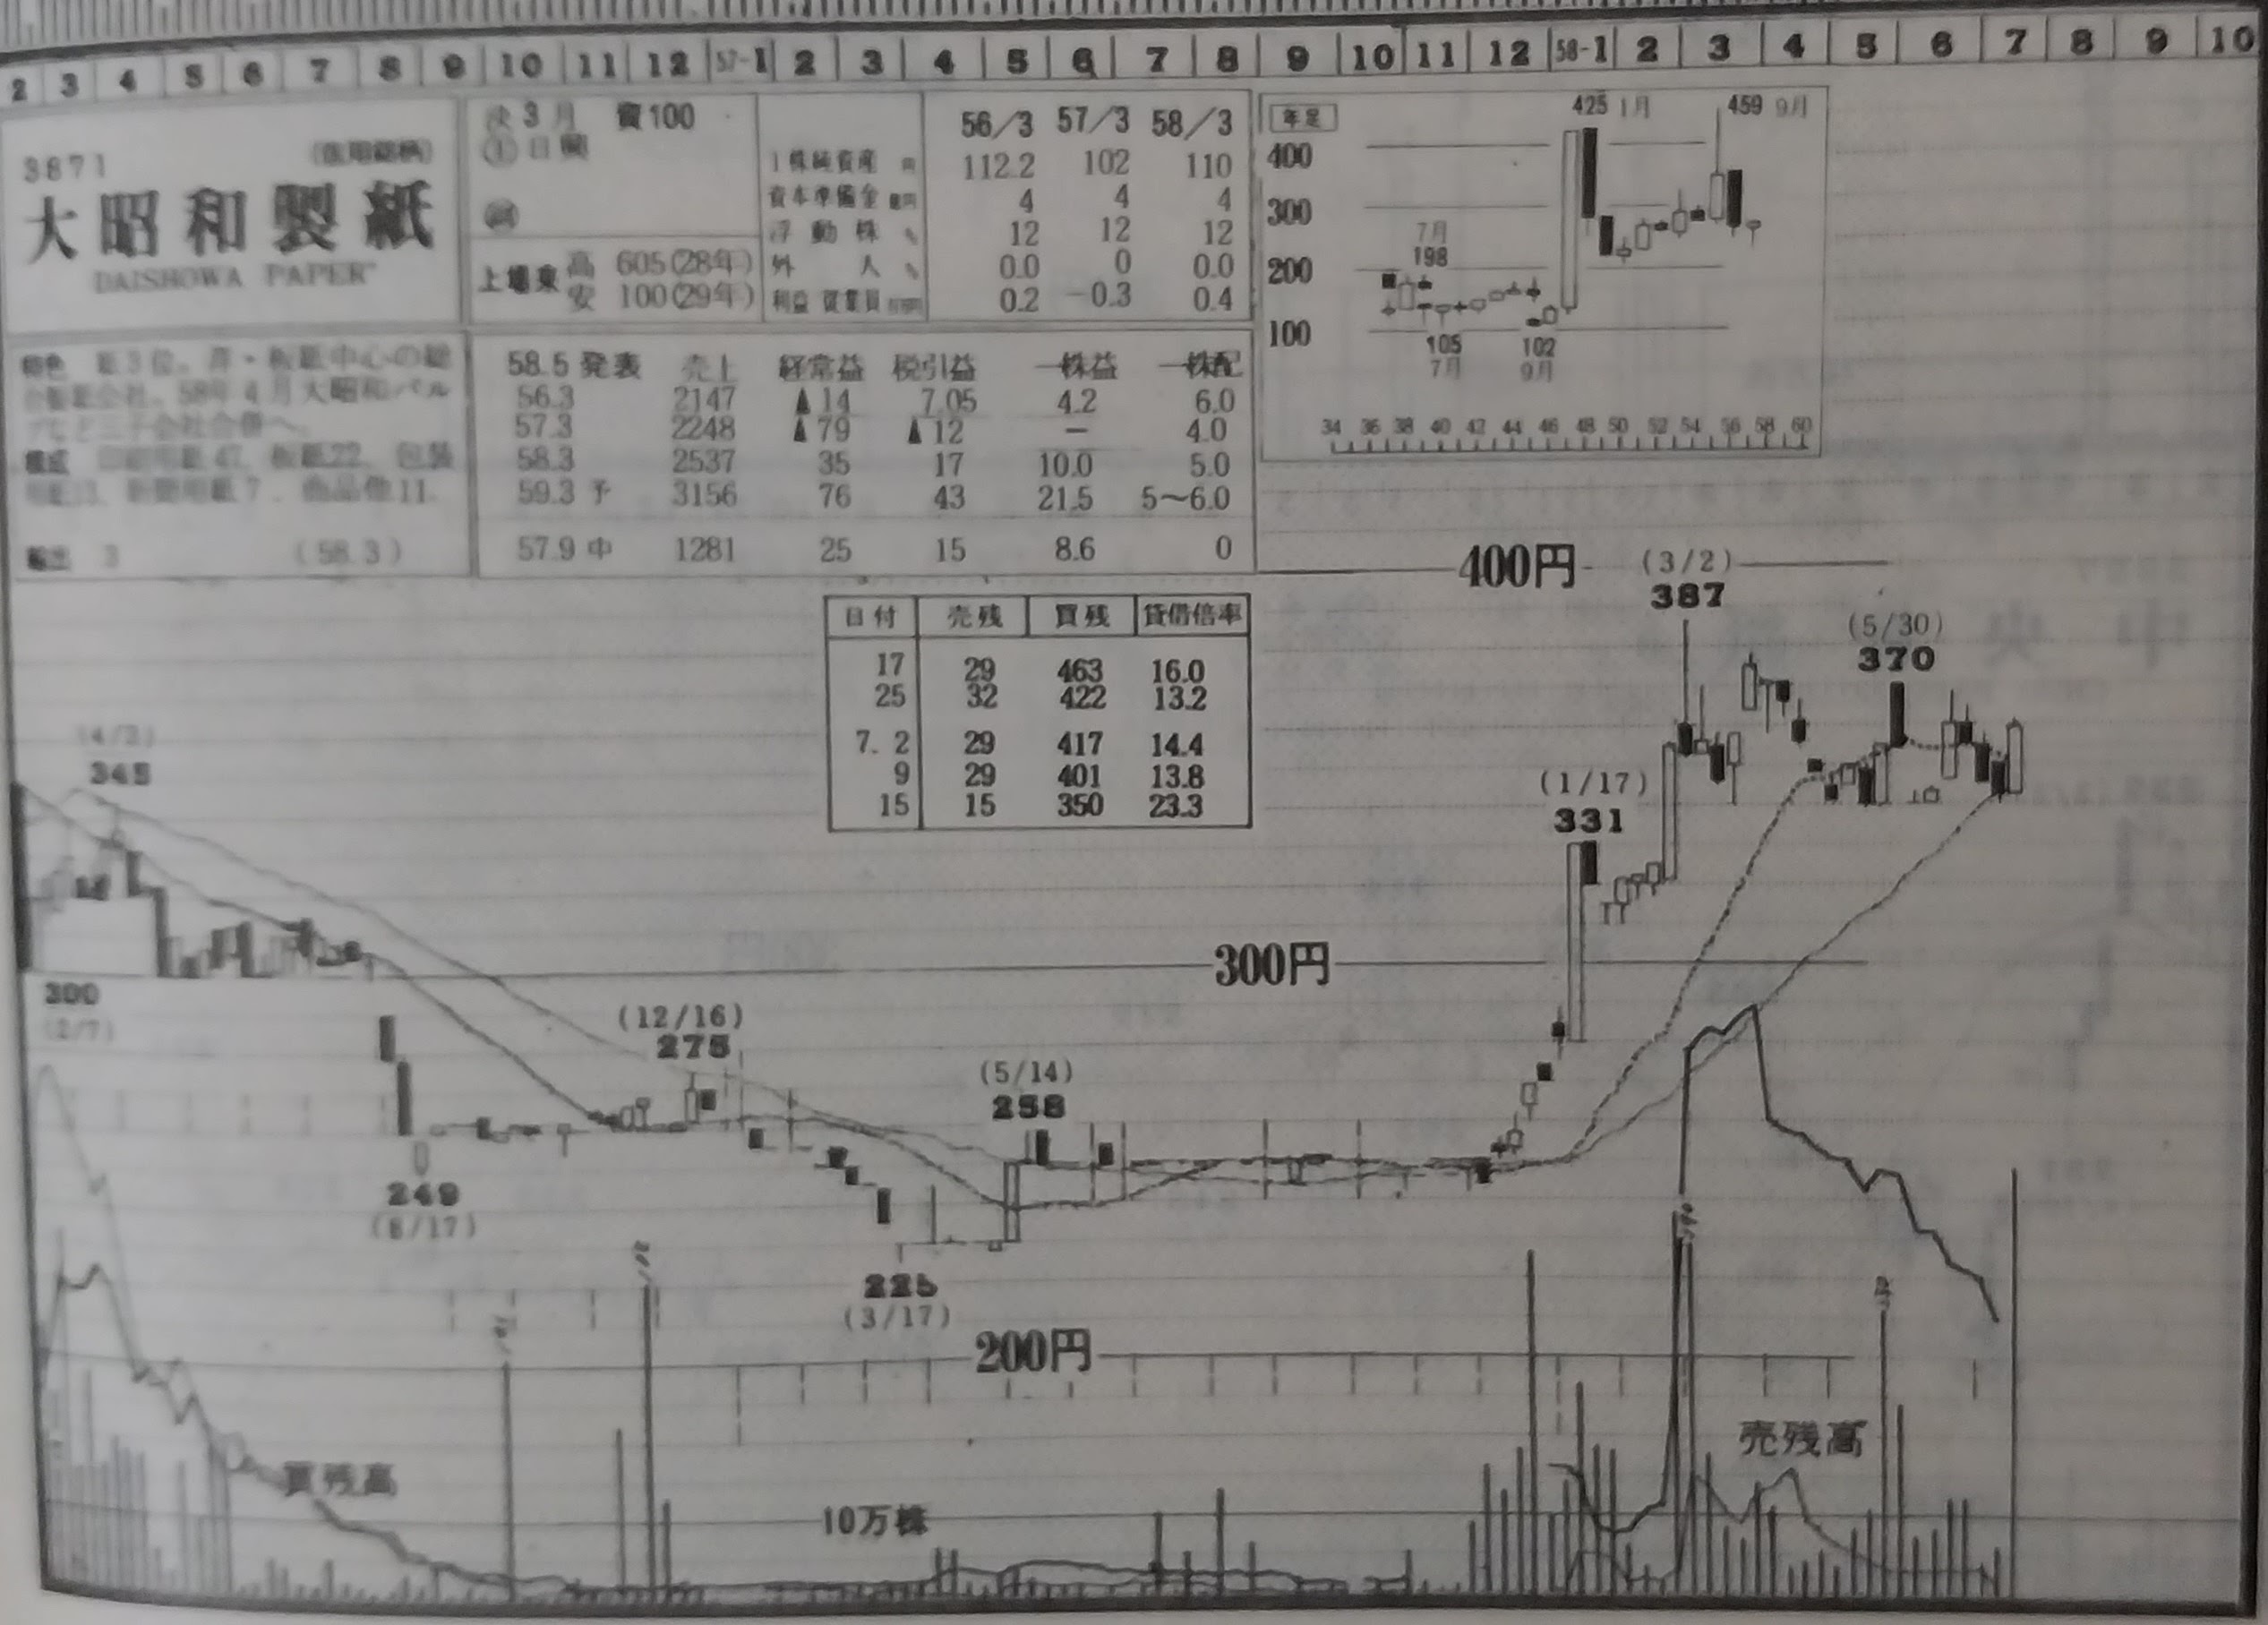 2 3 4 5 6 7 8 9 10 11 12 57-1 2 3 4 5 6 7 8 9 10 11 12 58-1 2 3 4 5 6 7 8 9 10
3871
大昭和製紙
DAISHOWA PAPER
決3月 資100
上場東
高 605(28年)
安 100(29年)
56/3 57/3 58/3
1株純資産 円 112.2 102 110
資本準備金 億円 4 4 4
浮動株 % 12 12 12
外人 % 0.0 0 0.0
利益 従業員 0.2 -0.3 0.4
特色 紙3位。
会社。58年4月大昭和パル
プなど三子会社合併へ。
輸出 3 (58.3)
58.5発表 売上 経常益 税引益 一株益 一株配
56.3 2147 ▲14 7.05 4.2 6.0
57.3 2248 ▲79 ▲12 − 4.0
58.3 2537 35 17 10.0 5.0
59.3予 3156 76 43 21.5 5〜6.0
57.9中 1281 25 15 8.6 0
年足
425 1月
459 9月
400
300
200
100
7月
198
105
7月
102
9月
34 36 38 40 42 44 46 48 50 52 54 56 58 60
日付 売残 買残 貸借倍率
17 29 463 16.0
25 32 422 13.2
7. 2 29 417 14.4
9 29 401 13.8
15 15 350 23.3
400円
(3/2)
387
(5/30)
370
345
(1/17)
331
300円
300
(2/7)
(12/16)
275
(5/14)
258
249
(8/17)
225
(3/17)
200円
売残高
買残高
10万株